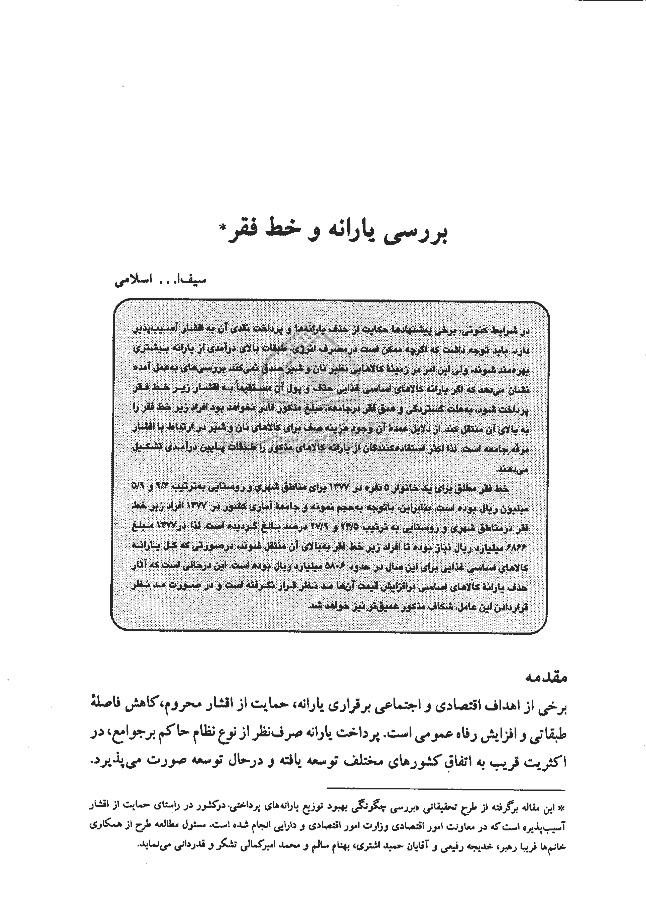 بررسی یارانه و خط فقر*
سیف‌ا... اسلامی
در شرایط کنونی، برخی پیشنهادها حکایت از حذف یارانه‌ها و پرداخت نقدی آن به اقشار آسیب‌پذیر
دارد. باید توجه داشت که اگرچه ممکن است درمصرف انرژی، طبقات بالای درآمدی از یارانه بیشتری
بهره‌مند شوند، ولی این امر در زمینهٔ کالاهایی نظیر نان و شیر صدق نمی‌کند. بررسی‌های به‌عمل آمده
نشان می‌دهد که اگر یارانه کالاهای اساسی غذایی حذف و پول آن مستقیماً به اقشار زیر خط فقر
پرداخت شود، به‌علت گستردگی و عمق فقر درجامعه، مبلغ مذکور قادر نخواهد بود افراد زیر خط فقر را
به بالای آن منتقل کند. از دلایل عمده آن وجود هزینه صف برای کالاهای نان و شیر در ارتباط با اقشار
مرفه جامعه است. لذا اکثر استفاده‌کنندگان از یارانه کالاهای مذکور را طبقات پایین درآمدی تشکیل
می‌دهند.
خط فقر مطلق برای یک خانوار ۵ نفره در ۱۳۷۷ برای مناطق شهری و روستایی به‌ترتیب ۹/۴ و ۵/۹
میلیون ریال بوده است. بنابراین، باتوجه به‌حجم نمونه و جامعهٔ آماری کشور در ۱۳۷۷ افراد زیر خط
فقر درمناطق شهری و روستایی به ترتیب ۲۴/۵ و ۲۷/۹ درصد بالغ گردیده است. لذا در۱۳۷۷ مبلغ
۶۸۶۶ میلیارد ریال نیاز بوده تا افراد زیر خط فقر به‌بالای آن منتقل شوند، درصورتی که کل یارانهٔ
کالاهای اساسی غذایی برای این سال در حدود ۵۸۰۶ میلیارد ریال بوده است. این درحالی است که آثار
حذف یارانهٔ کالاهای اساسی برافزایش قیمت آن‌ها مد نظر قرار نگرفته است و در صورت مد نظر
قراردادن این عامل، شکاف مذکور عمیق‌تر نیز خواهد شد.
مقدمه
برخی از اهداف اقتصادی و اجتماعی برقراری یارانه، حمایت از اقشار محروم، کاهش فاصلهٔ
طبقاتی و افزایش رفاه عمومی است. پرداخت یارانه صرف‌نظر از نوع نظام حاکم برجوامع، در
اکثریت قریب به اتفاق کشورهای مختلف توسعه یافته و درحال توسعه صورت می‌پذیرد.
* این مقاله برگرفته از طرح تحقیقاتی «بررسی چگونگی بهبود توزیع یارانه‌های پرداختی درکشور در راستای حمایت از اقشار
آسیب‌پذیر» است که در معاونت امور اقتصادی وزارت امور اقتصادی و دارایی انجام شده است. مسئول مطالعه طرح از همکاری
خانم‌ها فریبا رهبر، خدیجه رفیعی و آقایان حمید اشتری، بهنام سالم و محمد امیرکمالی تشکر و قدردانی می‌نماید.